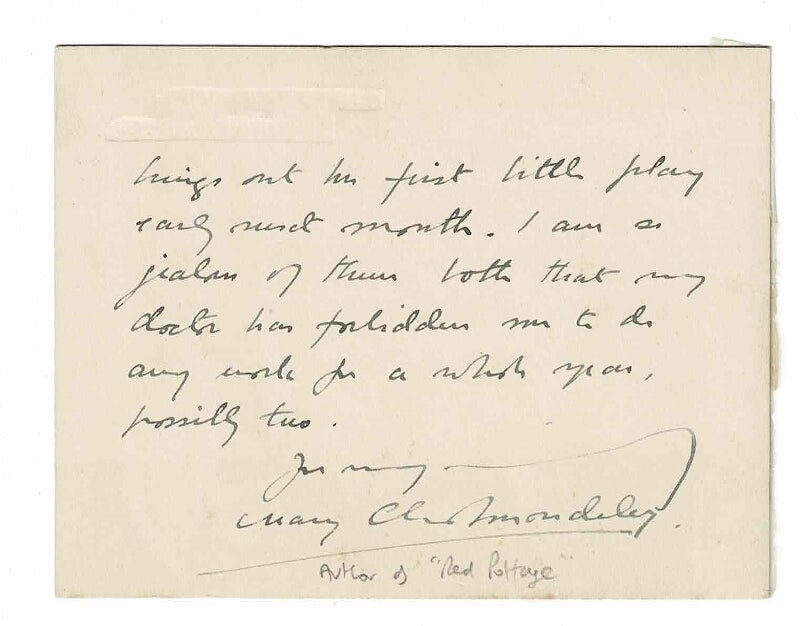 brings out his first little play
early next month. I am so
jealous of them both that my
doctor has forbidden me to do
any work for a whole year,
possibly two.
Mary Cholmondeley.
Author of "Red Pottage"